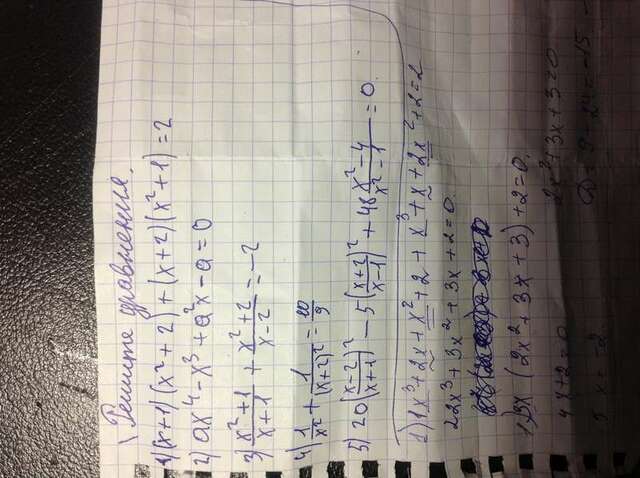 Решите уравнения.
1) (x+1)(x²+2)+(x+2)(x²+1)=2
2) ax⁴-x³+a²x-a=0
3) (x²+1)/(x+1) + (x²+2)/(x-2) = -2
4) 1/x² + 1/(x+2)² = 10/9
5) 20((x-2)/(x+1))² - 5((x+2)/(x-1))² + 48 (x²-4)/(x²-1) = 0
1) 1x³+2x+x²+2+x³+x+2x²+2=2
2x³+3x²+3x+2=0.
x (2x²+3x+3)+2=0.
x+2=0 2x²+3x+3=0
x=-2 D=9-24=-15